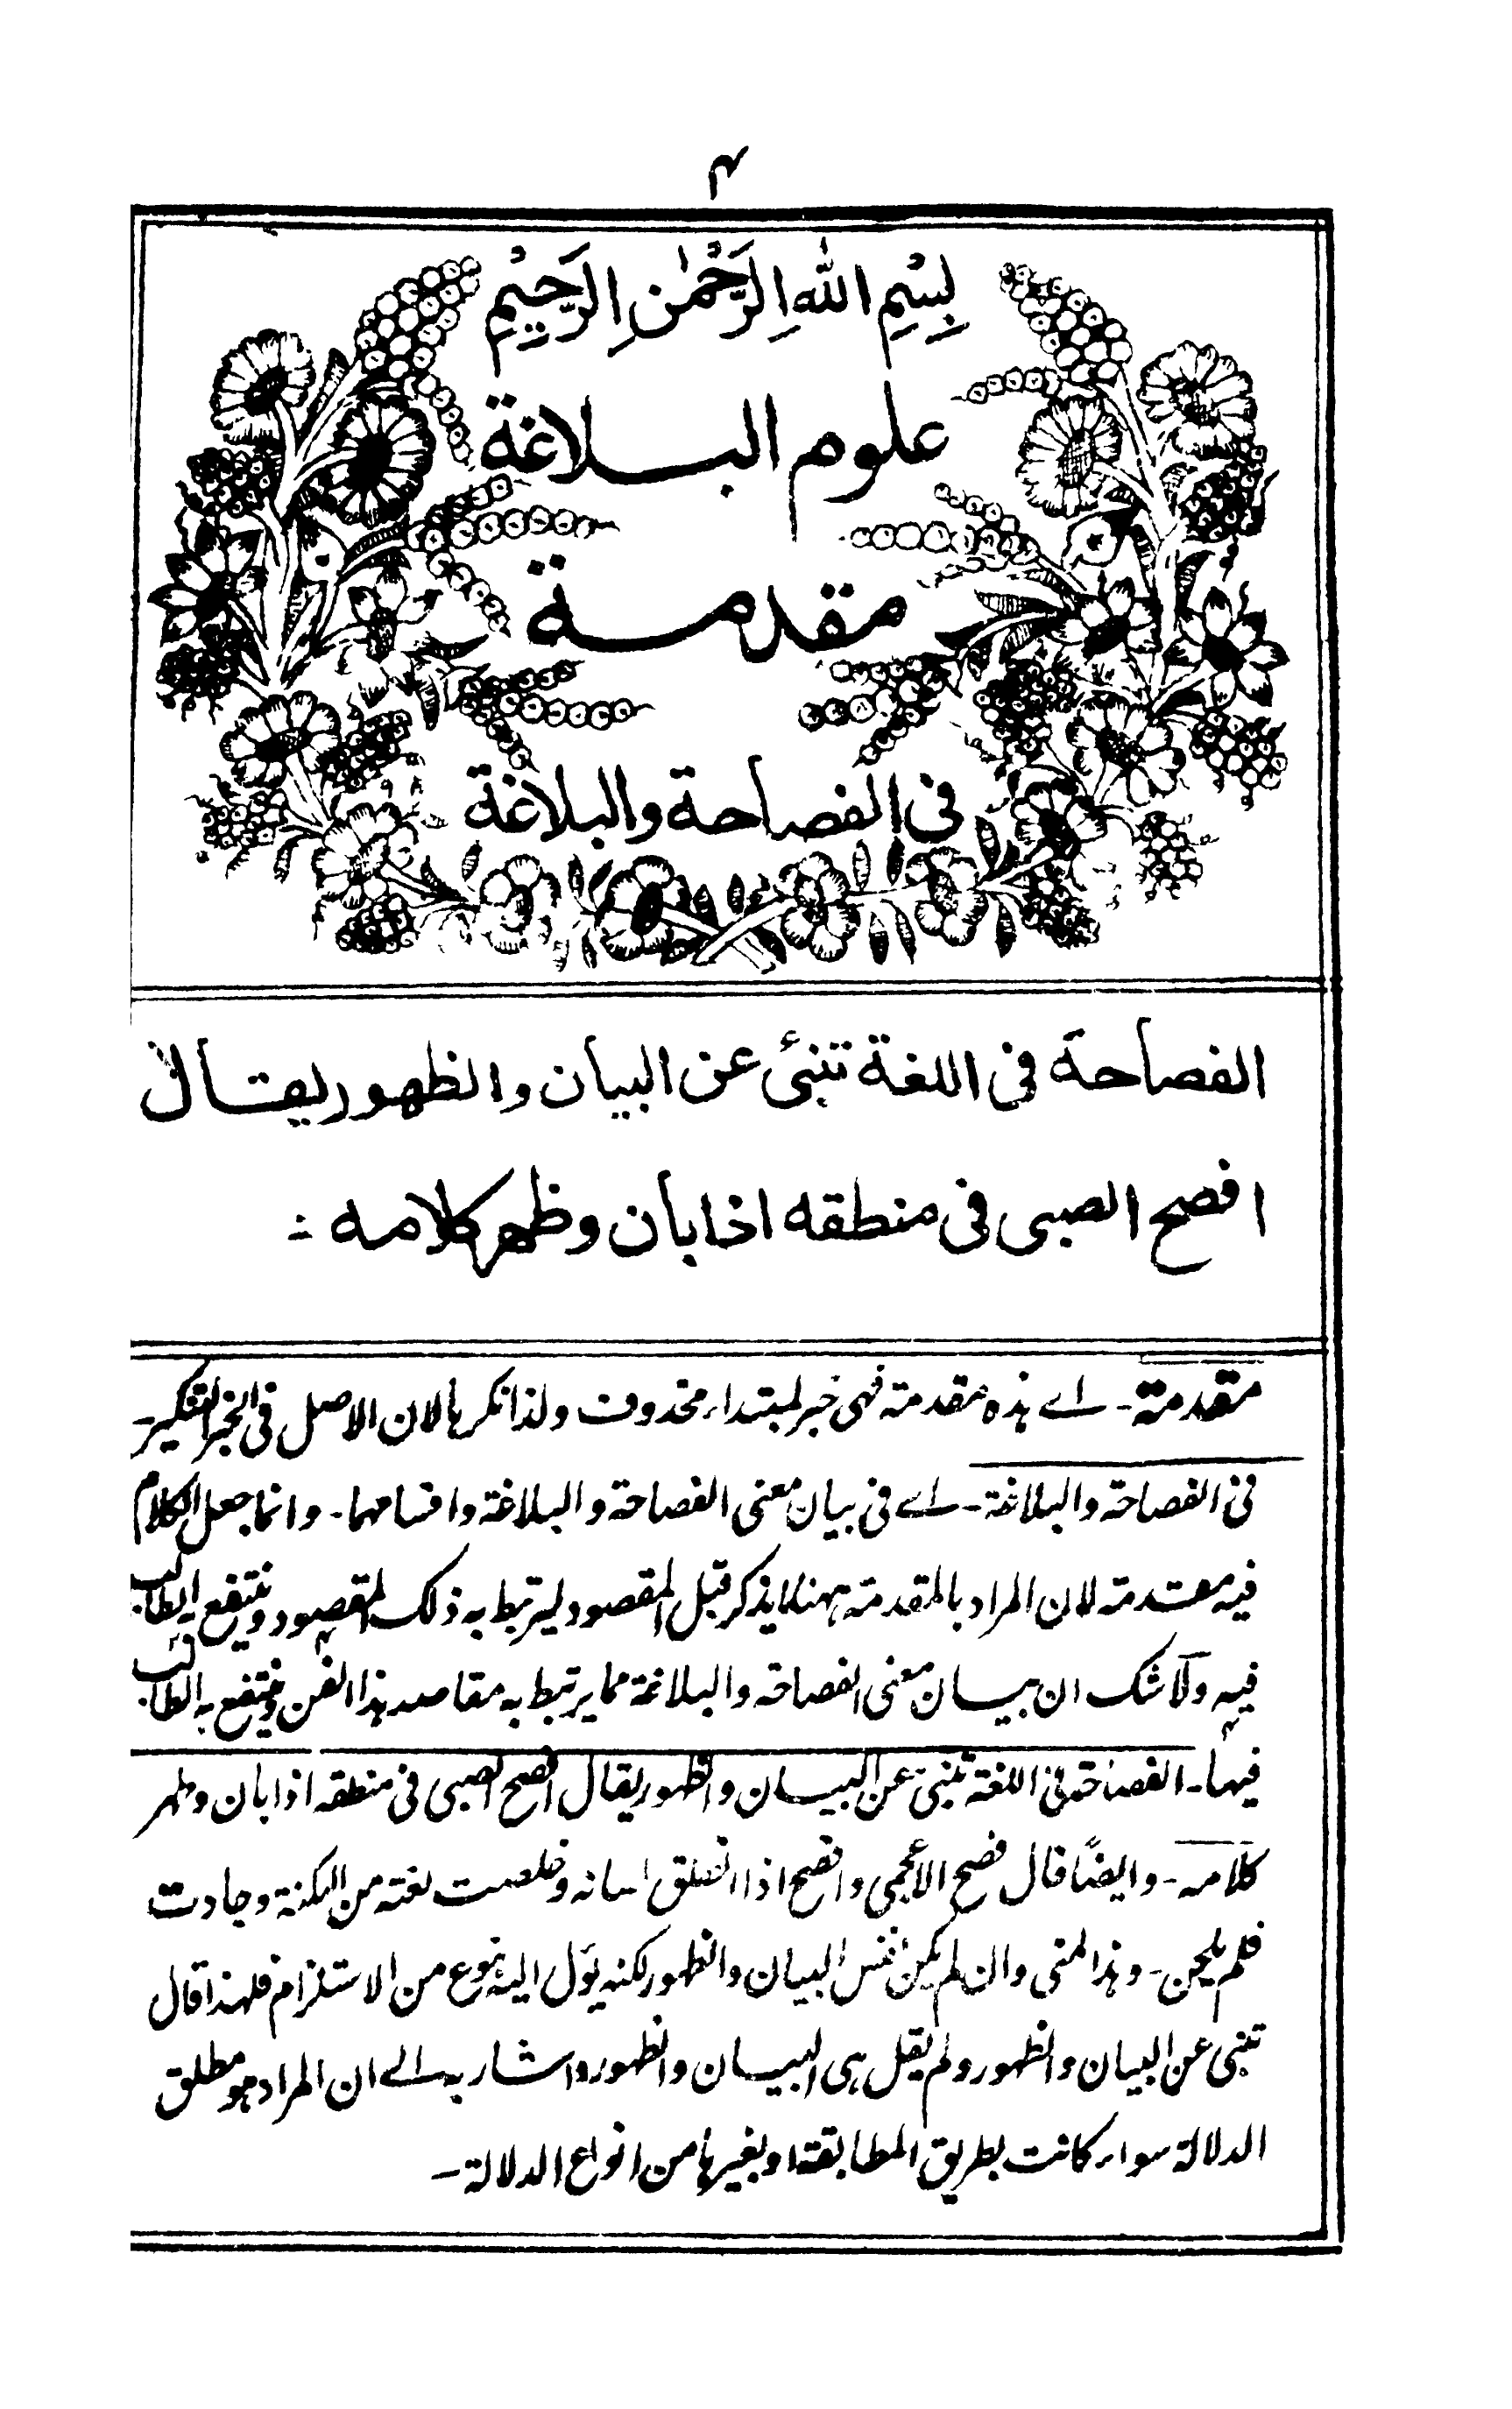 ۴
بِسْمِ اللّٰهِ الرَّحْمٰنِ الرَّحِيْمِ
علوم البلاغة
مقدمة
فى الفصاحة والبلاغة
الفصاحة فى اللغة تنبئ عن البيان والظهور يقال
افصح الصبى فى منطقه اذا بان وظهر كلامه :
مقدمة۔ اے هذه مقدمة فهى خبر لمبتداء محذوف ولذا نكرها لان الاصل فى الخبر التنكير۔
فى الفصاحة والبلاغة۔ اے فى بيان معنى الفصاحة والبلاغة واقسامهما۔ وانما جعل الكلام
فيه مقدمة لان المراد بالمقدمة ههنا ما يذكر قبل المقصود ليرتبط به ذلك المقصود وينتفع الطالب
فيه ولا شك ان بيان معنى الفصاحة والبلاغة مما يرتبط به مقاصد هذا الفن وينتفع به الطالب
فيها۔ الفصاحة فى اللغة تنبئ عن البيان والظهور يقال افصح الصبى فى منطقه اذا بان وظهر
كلامه۔ وايضًا قال فصح الاعجمى وافصح اذا انطلق لسانه وخلصت لغته من اللكنة وجادت
فلم يلحن۔ وهذا المعنى وان لم يكن نفس البيان والظهور لكنه يؤل اليه بنوع من الاستلزام فلهذا قال
تنبى عن البيان والظهور ولم يقل هى البيان والظهور واشار به الے ان المراد هو مطلق
الدلالة سواء كانت بطريق المطابقة او بغيرها من انواع الدلالة۔